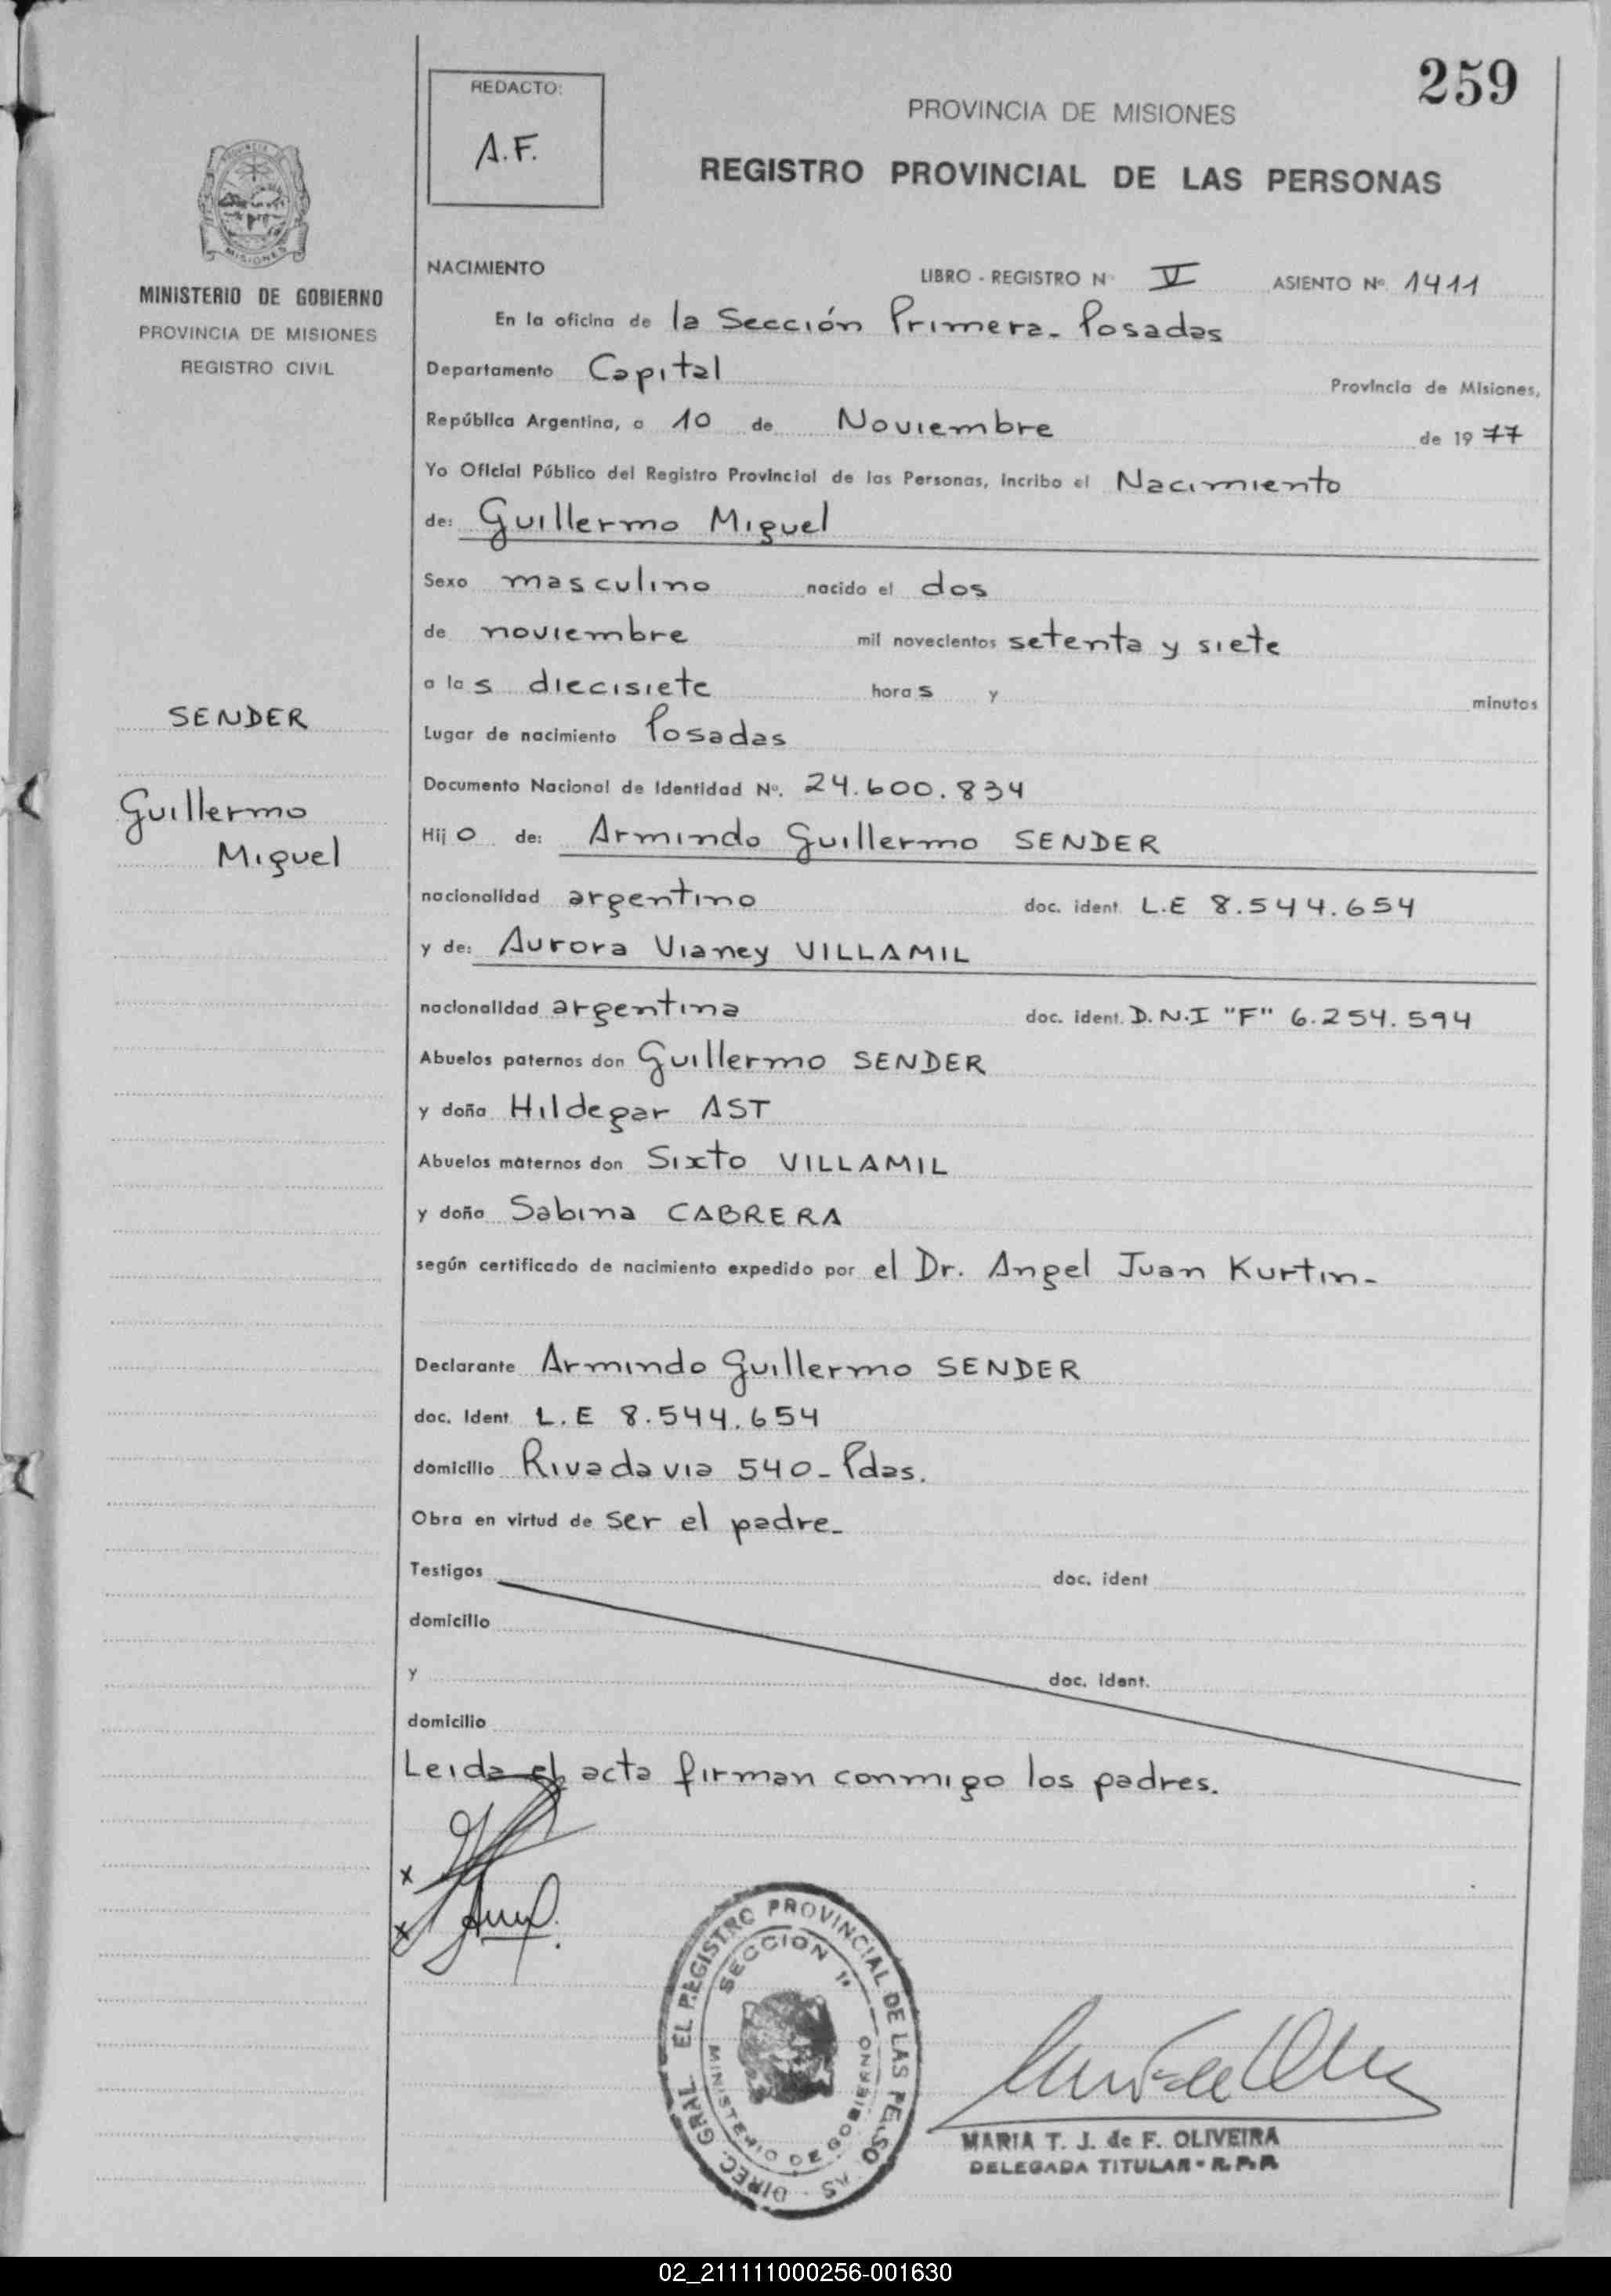 259
REDACTO:
A.F.
PROVINCIA DE MISIONES
REGISTRO PROVINCIAL DE LAS PERSONAS
MISIONES
MINISTERIO DE GOBIERNO
PROVINCIA DE MISIONES
REGISTRO CIVIL
SENDER
Guillermo
Miguel
NACIMIENTO LIBRO - REGISTRO Nº V ASIENTO Nº 1411
En la oficina de la Sección Primera - Posadas
Departamento Capital Provincia de Misiones,
República Argentina, a 10 de Noviembre de 1977
Yo Oficial Público del Registro Provincial de las Personas, incribo el Nacimiento
de: Guillermo Miguel
Sexo masculino nacido el dos
de noviembre mil novecientos setenta y siete
a las diecisiete horas y minutos
Lugar de nacimiento Posadas
Documento Nacional de Identidad Nº. 24.600.834
Hijo de: Armindo Guillermo SENDER
nacionalidad argentino doc. ident. L.E 8.544.654
y de: Aurora Vianey VILLAMIL
nacionalidad argentina doc. ident. D.N.I "F" 6.254.594
Abuelos paternos don Guillermo SENDER
y doña Hildegar AST
Abuelos maternos don Sixto VILLAMIL
y doña Sabina CABRERA
según certificado de nacimiento expedido por el Dr. Angel Juan Kurtin-
Declarante Armindo Guillermo SENDER
doc. Ident L.E 8.544.654
domicilio Rivadavia 540 - Pdas.
Obra en virtud de ser el padre-
Testigos doc. ident
domicilio
y doc. ident.
domicilio
Leida el acta firman conmigo los padres.
x
x
DIREC. GRAL. EL REGISTRO PROVINCIAL DE LAS PERSONAS
SECCION 1ª
MINISTERIO DE GOBIERNO
MARIA T. J. de F. OLIVEIRA
DELEGADA TITULAR - R.P.P.
02_211111000256-001630